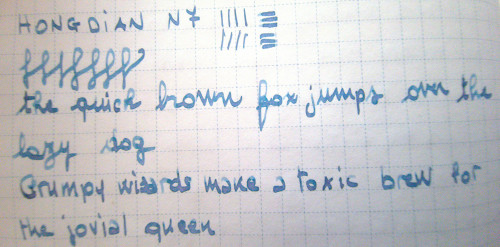 HONGDIAN N7
the quick brown fox jumps over the
lazy dog
Grumpy wizards make a toxic brew for
the jovial queen